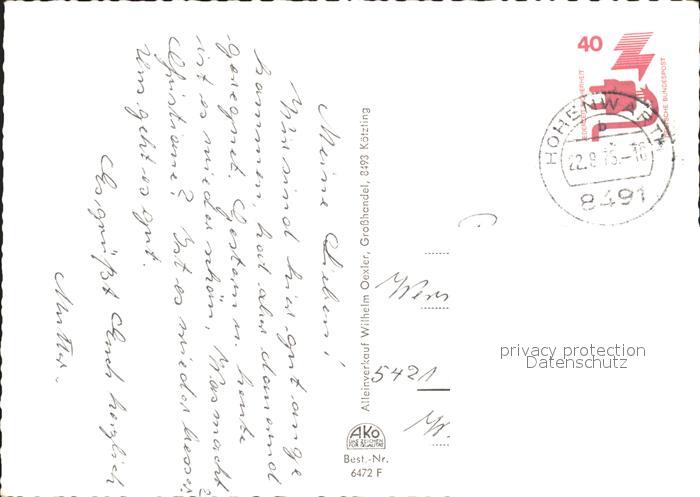 Meine Lieben!
Wir sind hier gut ange
kommen, hat aber dauernd
geregnet. Gestern u. heute
ist es wieder schön. Was macht
Christiane? Ist es wieder besser?
Uns geht es gut.
Es grüßt Euch herzlich
Mutter.
Alleinverkauf Wilhelm Oexler, Großhandel, 8493 Kötzting
40
DEUTSCHE BUNDESPOST
HOHENWARTH
b
22.8.75.-16
8491
5421
privacy protection
Datenschutz
AKO
DAS ZEICHEN
FÜR QUALITÄT
Best.-Nr.
6472 F